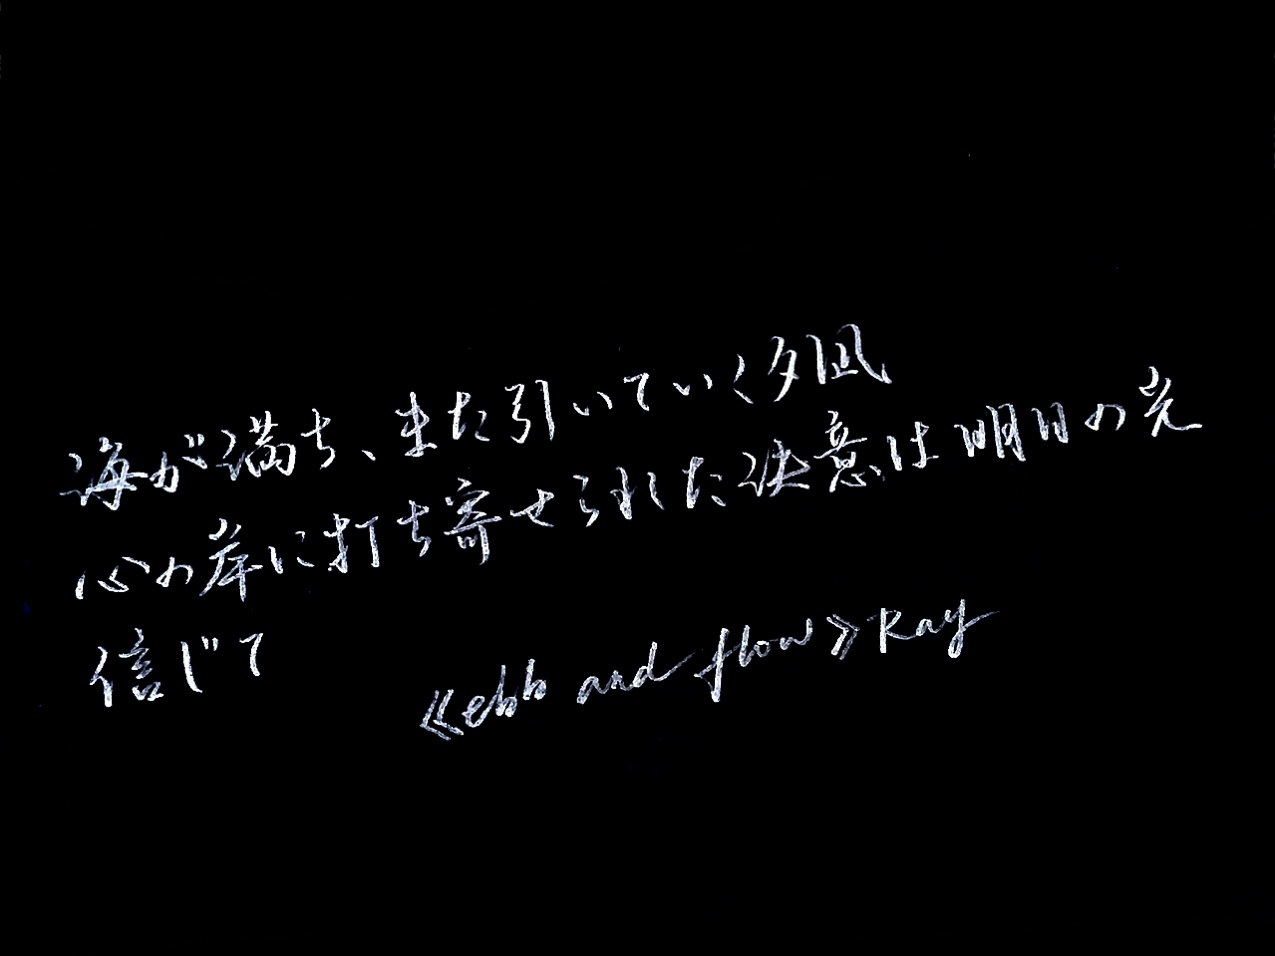 海が満ち、また引いていく夕凪
心の岸に打ち寄せられた決意は明日の光
信じて
《ebb and flow》Ray